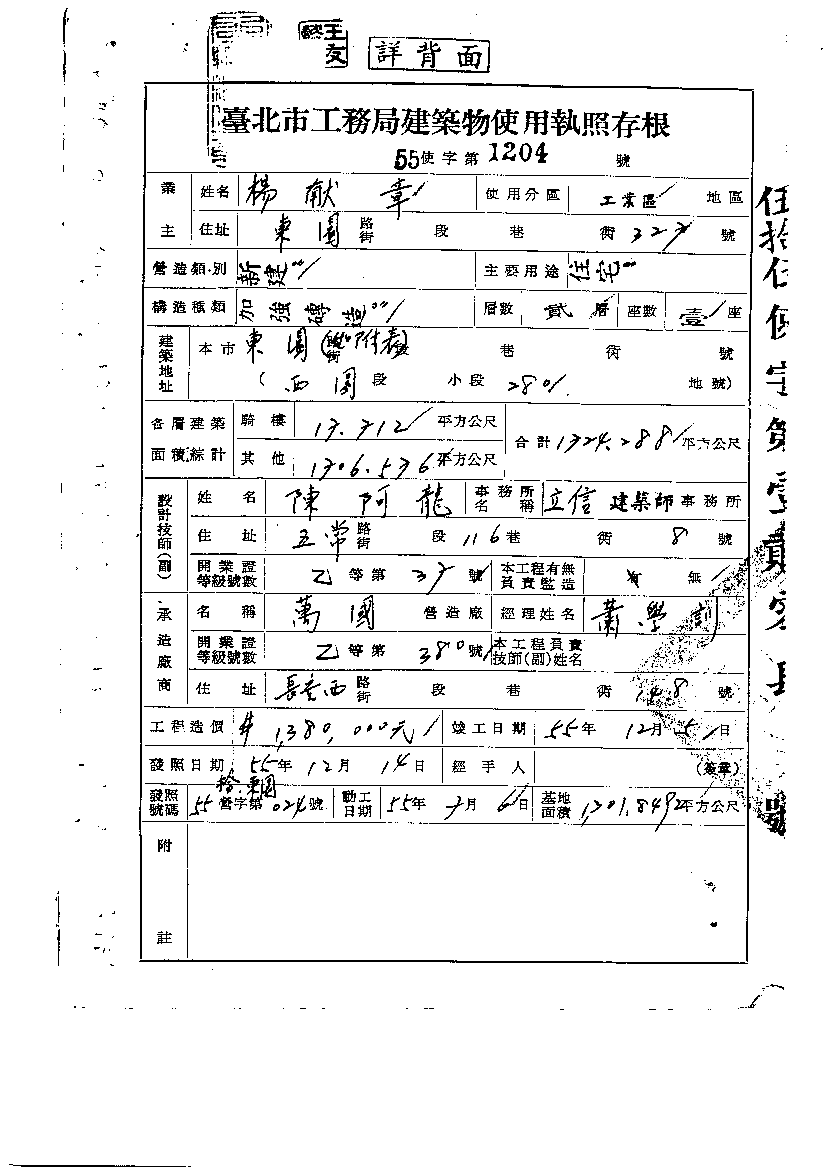 詳背面
臺北市工務局建築物使用執照存根
55使字第1204號
業主 姓名 楊献章 使用分區 工業區 地區
住址 東園路街 段 巷 衖 327 號
營造類別 新建 主要用途 住宅
構造種類 加強磚造 層數 貳層 座數 壹座
建築地址 本市東園路街(如附表) 巷 衖 號
(西園段 小段 280 地號)
各層建築面積綜計 騎樓 17.712 平方公尺 合計 1324.288 平方公尺
其他 1306.576 平方公尺
設計技師(副) 姓名 陳阿龍 事務所名稱 立信建築師事務所
住址 五常路街 段 116巷 衖 8 號
開業證等級號數 乙等第37號 本工程有無負責監造 有 無
承造廠商 名稱 萬國 營造廠 經理姓名 蕭學訓
開業證等級號數 乙等第380號 本工程負責技師(副)姓名
住址 長安西路街 段 巷 衖 148 號
工程造價 1,380,000元 竣工日期 55年12月5日
發照日期 55年12月14日 經手人 (簽章)
發照號碼 55營字第024號 動工日期 55年7月6日 基地面積 1,301.8492平方公尺
附註
伍拾伍使字第壹貳零肆號